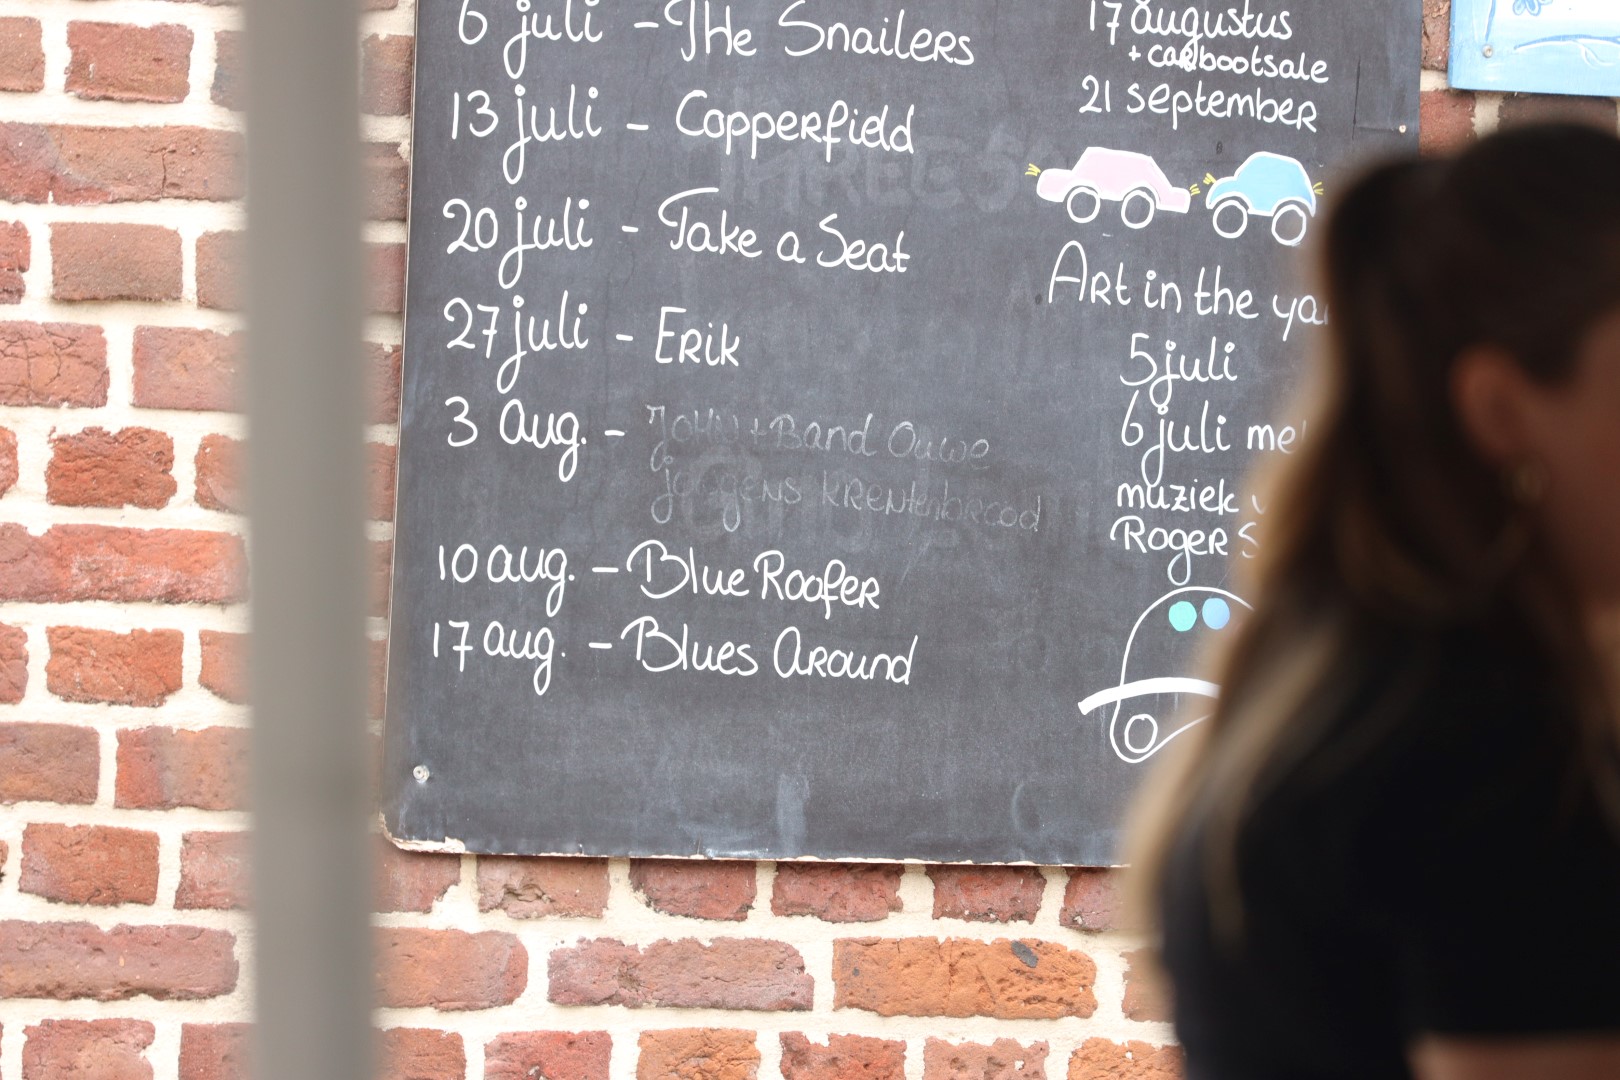 6 juli - The Snailers
13 juli - Copperfield
20 juli - Take a Seat
27 juli - Erik
3 aug. - John + Band Ouwe
jongens krentenbrood
10 aug. - Blue Roofer
17 aug. - Blues Around
17 augustus
+ carbootsale
21 september
Art in the
5 juli
6 juli
muziek
Roger